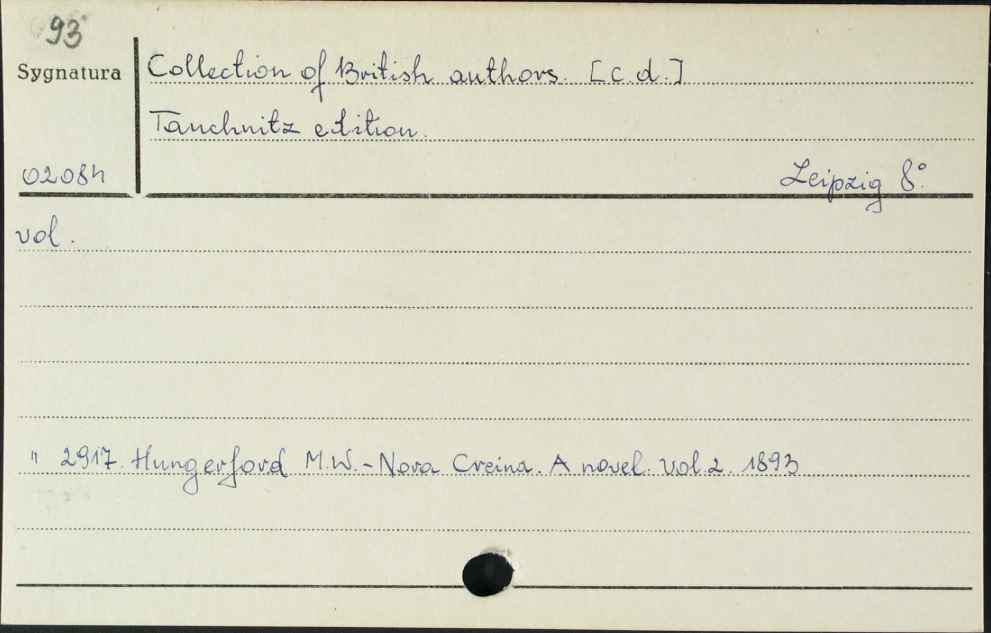 93
Sygnatura
Collection of British authors. [c.d.]
Tauchnitz edition.
02084
Leipzig 8°.
vol.
" 2917. Hungerford M.W. - Nora Creina. A novel. vol.2. 1893